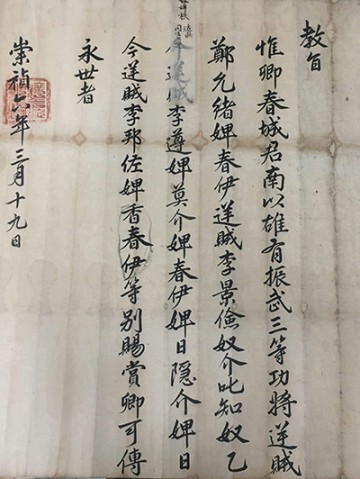 教旨
惟卿春城君南以雄有振武三等功將逆賊
鄭允緖婢春伊逆賊李景儉奴介叱知奴乙
逆賊李遵婢莫介婢春伊婢日隱介婢日
今逆賊李邦佐婢香春伊等別賜賞卿可傳
永世者
崇禎六年三月十九日